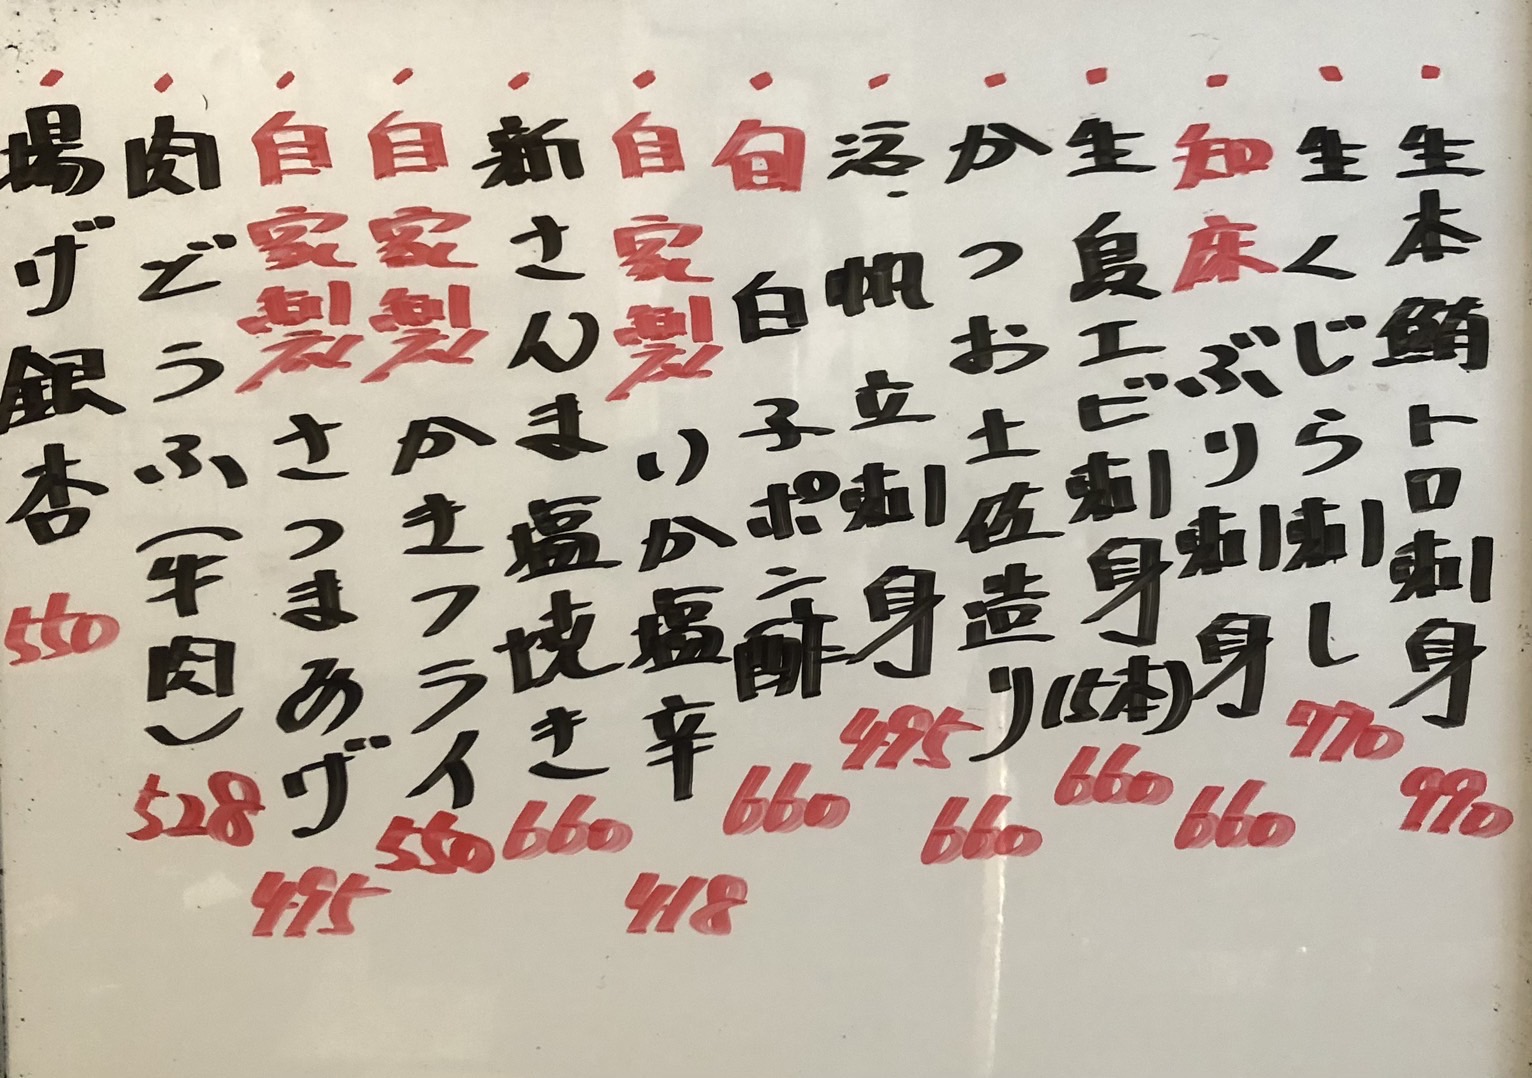 ・生本鮪トロ刺身 990
・生くじら刺し 770
・知床ぶり刺身 660
・生島エビ刺身(5本) 660
・かつお土佐造り 660
・活帆立刺身 495
・旬白子ポン酢 660
・自家製いか塩辛 418
・新さんま塩焼き 660
・自家製かきフライ 550
・自家製さつまあげ 495
・肉どうふ(牛肉) 528
・揚げ銀杏 550